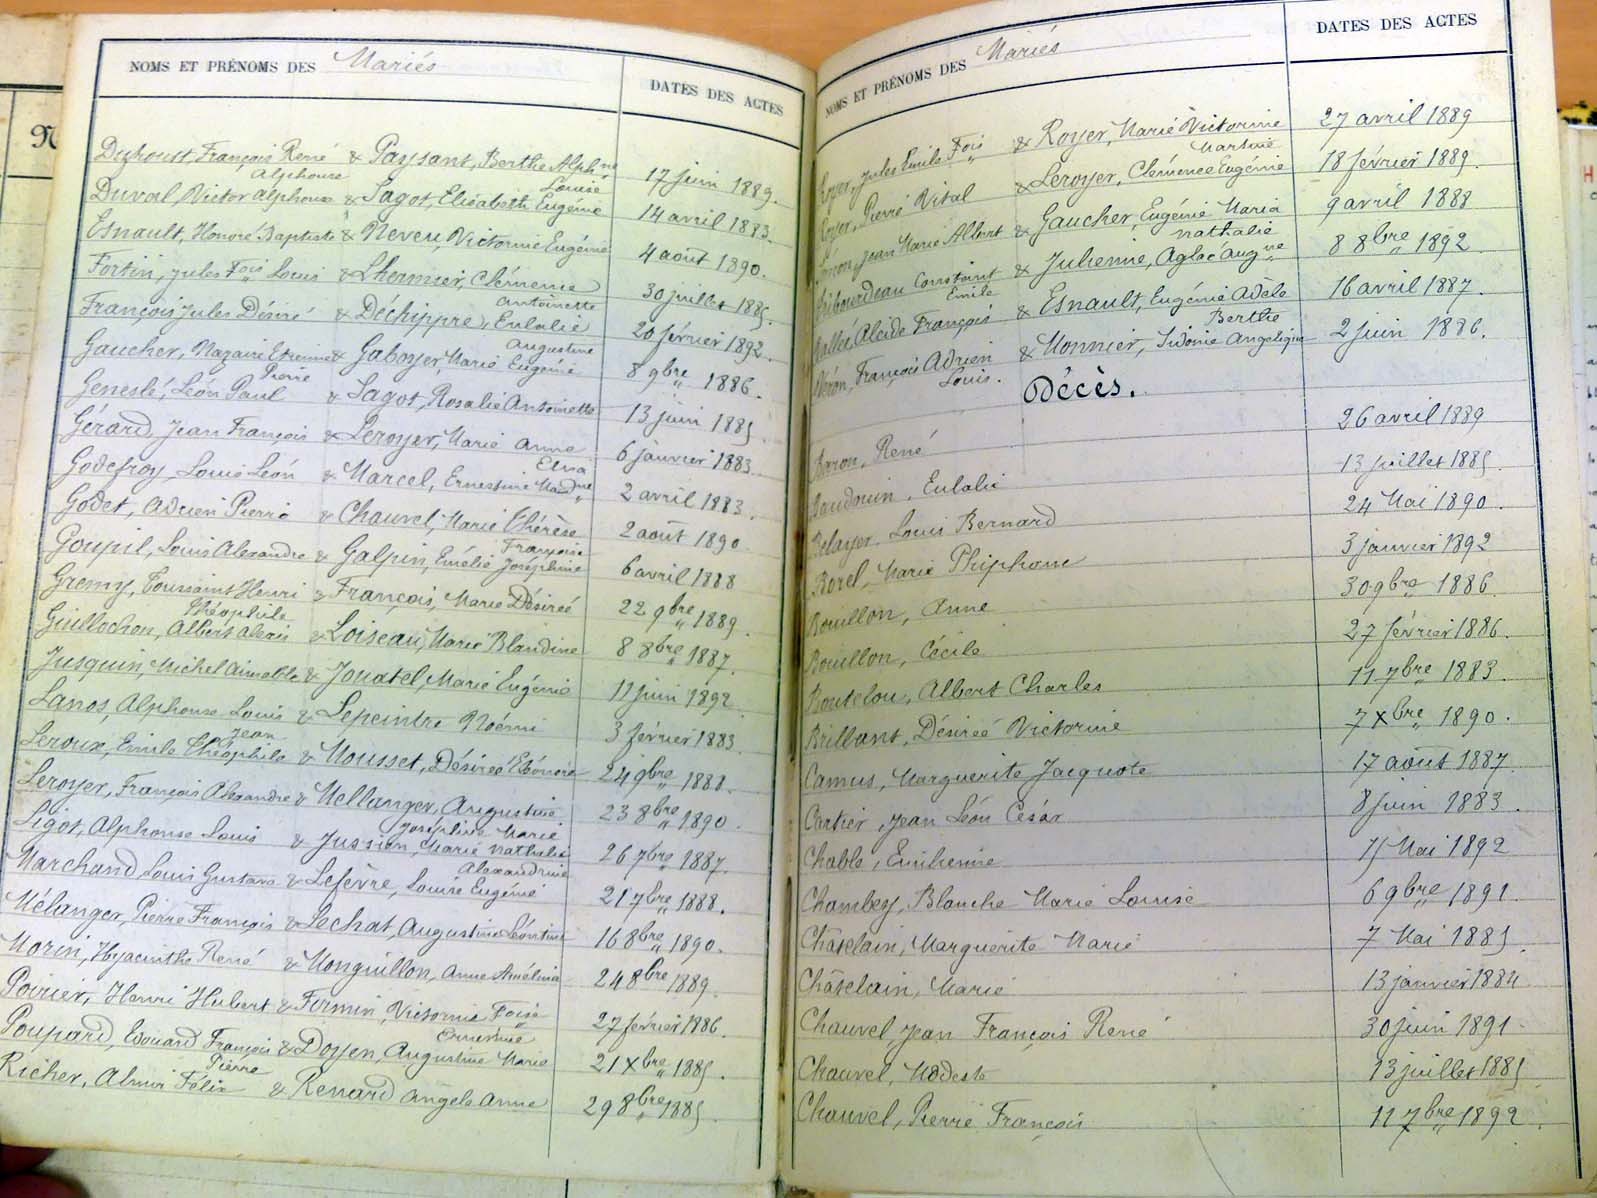 NOMS ET PRÉNOMS DES Mariés
DATES DES ACTES
François René & Paysant, Berthe Alph.ne 17 juin 1889.
Alphonse Louise
Duval, Victor Alphonse & Sagot, Elisabeth Eugénie 14 avril 1883.
Esnault, Honoré Baptiste & Neveu, Victorine Eugénie 4 août 1890.
Fortin, Jules Fois Louis & Lhermier, Clémence 30 juillet 1885.
Antoinette
François Jules Désiré & Déchippre, Eulalie 20 février 1892.
Augustine
Gaucher, Nazaire Etienne & Gaboyer, Marie Eugénie 8 9bre 1886.
Pierre
Geneslé, Léon Paul & Sagot, Rosalie Antoinette 13 juin 1885
Gérard, Jean François & Leroyer, Marie Anne 6 janvier 1883.
Elisa
Godefroy, Louis Léon & Marcel, Ernestine 2 avril 1883.
Godet, Adrien Pierre & Chauvel, Marie Thérèse 2 août 1890
Françoise
Goupil, Louis Alexandre & Galpin, Emélie Joséphine 6 avril 1888
Gremy, Toussaint Henri & François, Marie Désireé 22 9bre 1889.
Théophile
Guillochon, Albert Alexis & Loiseau, Marie Blandine 8 8bre 1887.
Jusquin, Michel Aimable & Jouatel, Marie Eugénie 11 juin 1892.
Lanos, Alphonse Louis & Lepeintre Noémi 3 février 1883.
Jean
Leroux, Emile Théophile & Mousset, Désirée Eléonore 24 9bre 1888.
Leroyer, François Alexandre & Mellanger, Augustine 23 8bre 1890.
Joséphine Marie
Ligot, Alphonse Louis & Jussian, Marie Nathalie 26 7bre 1887.
Alexandrine
Marchand, Louis Gustave & Lefèvre, Louise Eugénie 21 7bre 1888.
Mélanger, Pierre François & Lechat, Augustine Léontine 16 8bre 1890.
Morin, Hyacinthe René & Monguillon, Anne Amélina 24 8bre 1889.
Poirier, Henri Hubert & Firmin, Victorine Foise 27 février 1886.
Ernestine
Poupard, Edouard François & Doyen, Augustine Marie 21 Xbre 1885.
Pierre
Richer, Almir Félix & Renard Angèle Anne 29 8bre 1885
NOMS ET PRÉNOMS DES Mariés
DATES DES ACTES
Royer, Jules Emile Fois & Royer, Marie Victorine 27 avril 1889
Martine
Royer, Pierre Vital & Leroyer, Clémence Eugénie 18 février 1889.
Jean Marie Albert & Gaucher, Eugénie Maria 9 avril 1888
Nathalie
Constant & Julienne, Aglaé Aug.ne 8 8bre 1892.
Emile
Alcide François & Esnault, Eugénie Adèle 16 avril 1887.
Berthe
François Adrien & Monnier, Sidonie Angélique 2 juin 1886.
Louis.
Décès.
Baron, René 26 avril 1889
Baudouin, Eulalie 13 juillet 1885.
Belayer, Louis Bernard 24 Mai 1890.
Borel, Marie Phiphone 3 janvier 1892
Bouillon, Anne 30 9bre 1886.
Bouillon, Cécile 27 février 1886.
Boutelou, Albert Charles 11 7bre 1883.
Brillant, Désireé Victorine 7 Xbre 1890.
Camus, Marguerite Jacquote 17 août 1887.
Cartier, Jean Léon César 8 juin 1883.
Chable, Emilienne 15 Mai 1892
Chambey, Blanche Marie Louise 6 9bre 1891.
Châtelain, Marguerite Marie 7 Mai 1885.
Châtelain, Marie 13 janvier 1884
Chauvel, Jean François René 30 juin 1891.
Chauvel, Modeste 13 juillet 1885
Chauvel, Pierre François 11 7bre 1892.